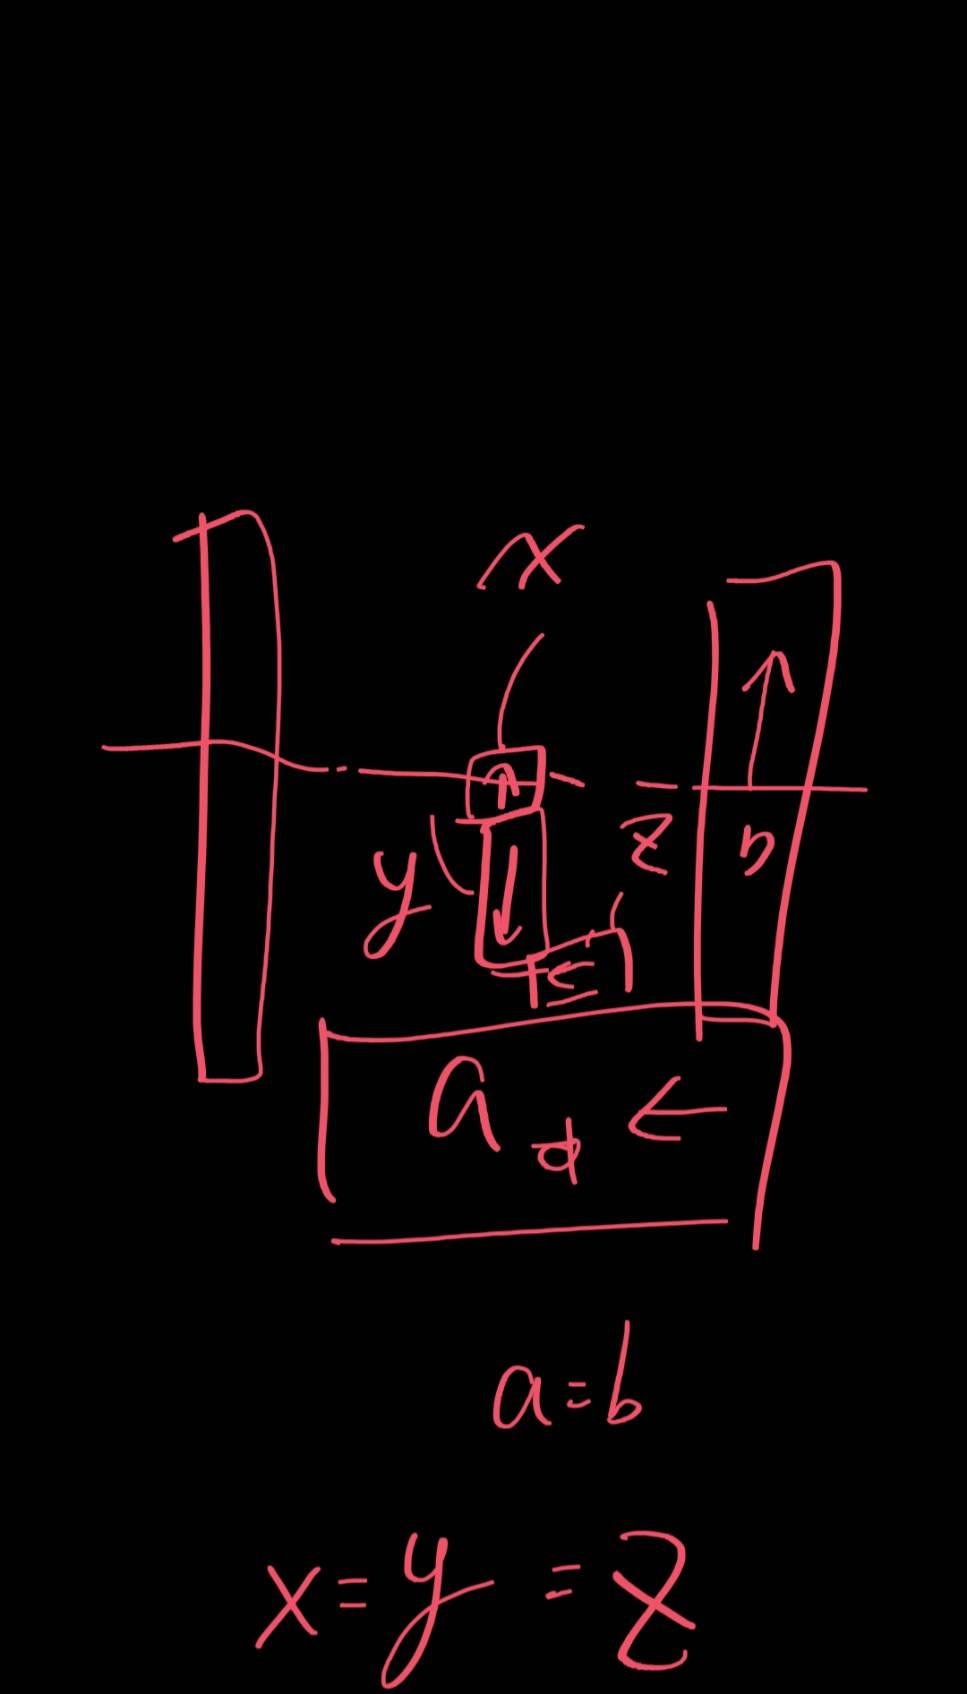 x
y
z
b
a
a=b
x=y=z